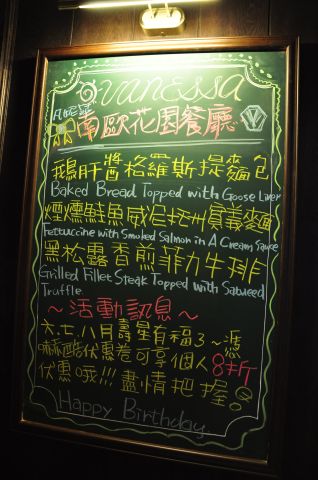 Vanessa
凡妮莎
南歐花園餐廳
鵝肝醬格羅斯提麵包
Baked Bread Topped with Goose Liver
煙燻鮭魚威尼托州寬義麵
Fettuccine with Smoked Salmon in A Cream Sauce
黑松露香煎菲力牛排
Grilled Fillet Steak Topped with Sabreed
Truffle
~活動訊息~
六.七.八月壽星有福了~憑
嘛酷優惠卷可享個人8折
優惠哦!!!盡情把握
Happy Birthday